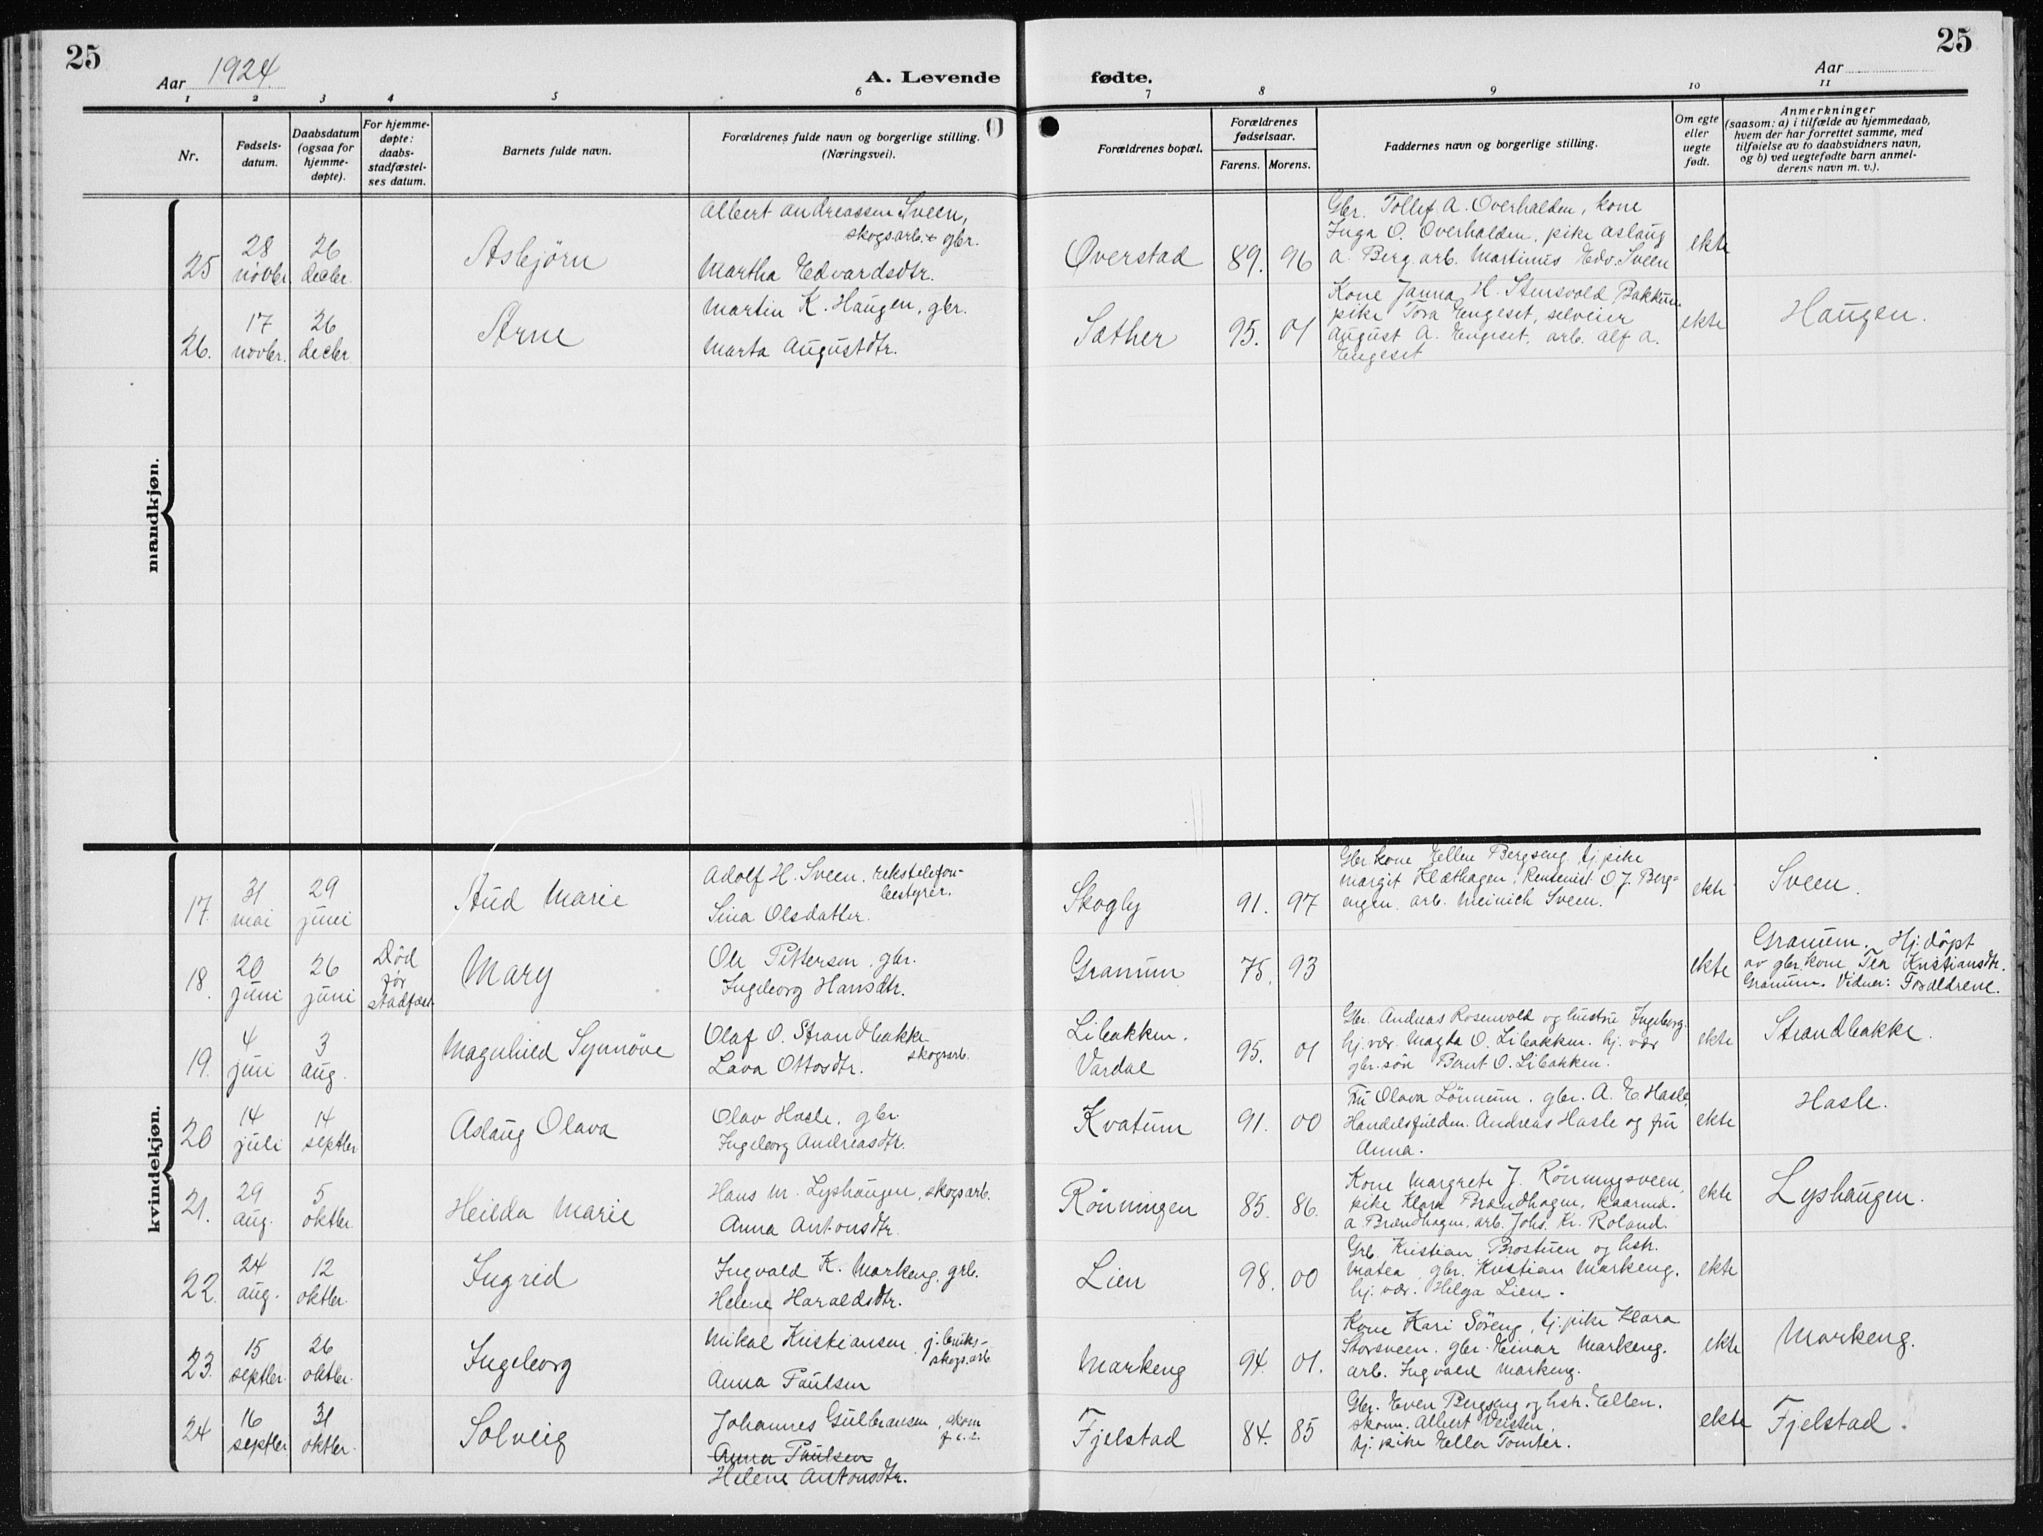 25
25
Aar 1924.
A. Levende
fødte.
Aar
1 2 3 4 5 6 7 8 9 10 11
Nr.
Fødsels-
datum.
Daabsdatum
(ogsaa for
hjemme-
døpte).
For hjemme-
døpte:
daabs-
stadfæstel-
ses datum.
Barnets fulde navn.
Forældrenes fulde navn og borgerlige stilling.
(Næringsvei).
Forældrenes bopæl.
Forældrenes
fødselsaar.
Farens. Morens.
Faddernes navn og borgerlige stilling.
Om egte
eller
uegte
født.
Anmerkninger
(saasom: a) i tilfælde av hjemmedaab,
hvem der har forrettet samme, med
tilføielse av to daabsvidners navn,
og b) ved uegtefødte barn anmel-
derens navn m. v.).
mandkjøn.
25
28
novbr.
26
decbr.
Asbjörn
Albert Andreassen Sveen,
skogsarb. gbr.
Martha Edvardsdtr.
Överstad
89. 96
Gbr. Tollef A. Overhalden, kone
Inga O. Overhalden, pike Aslaug
A. Berg arb. Martinus Edv. Sveen
ekte
26.
17
novbr.
26
decbr
Arne
Martin K. Haugen, gbr.
Marta Augustdtr.
Sæther
95. 01
Kone Janna H. Stensvold Bakkum
pike Tora Engeset, selveier
August A. Engeset, arb. Alf A.
Engeset
ekte
Haugen.
kvindekjøn.
17.
31
mai
29
juni
Aud Marie
Adolf H. Sveen. rikstelefon-
bestyrer.
Sina Olsdatter.
Skogly
91. 97
Gbr. kone Ellen Bergseng, tj. pike
Margit Klæthagen, Rentenist O J. Berg-
engen, arb. Meinich Sveen.
ekte
Sveen.
18.
20
juni
26
juni
Död
för
stadfæst.
Mary
Ole Pettersen, gbr.
Ingeborg Hansdtr.
Granum
75. 93
ekte
Granum. Hj. döpt
av gbr. kone Tea Kristiansdtr.
Granum. Vidner: Foreldrene.
19.
4
juni
3
aug.
Magnhild Synnöve
Olaf O. Strandbakke
skogsarb.
Lava Ottosdtr.
Libakken.
Vardal
95. 01
Gbr. Andreas Rosenvold og hustru Ingeborg.
hj. vær. Magda O. Libakken. hj. vær
gbr. sön Bernt O. Libakken.
ekte
Strandbakke.
20
14
juli
14
septbr
Aslaug Olava
Olav Hasle, gbr.
Ingeborg Andreasdtr.
Kvatum
91. 00
Fru Olava Lönnum. gbr. A. E. Hasle,
Handelsfuldm. Andreas Hasle og fru
Anna.
ekte
Hasle.
21.
29
aug.
5
oktbr.
Heilda Marie
Hans M. Lyshaugen, skogsarb.
Anna Antonsdtr.
Rönningen
85. 86.
Kone Margrete J. Rönningsveen,
pike Klara Brændhagen, kaarmd.
A Brændhagen, arb. Johs. Kr. Roland.
ekte
Lyshaugen.
22.
24
aug.
12
oktbr.
Ingrid
Ingvald K. Markeng, grb.
Helene Haraldsdtr.
Lien
98. 00
Grb. Kristian Prostuen og hstr.
Matea, gbr. Kristian Markeng.
hj. vær. Helga Lien.
ekte
23.
15
septbr.
26
oktbr.
Ingeborg
Mikal Kristiansen, j. bruks-
skogsarb
Anna Paulsen
Markeng
94. 01.
Kone Kari Söreng, tj. pike Klara
Storsveen. gbr. Einar Markeng.
arb. Ingvald Markeng.
ekte
Markeng.
24
16
septbr
31
oktbr.
Solveig
Johannes Gulbransen, skom
Anna Paulsen
Helene Antonsdtr.
Fjelstad
84. 85
Gbr. Even Bergseng og hstr. Ellen.
skom. Albert Veisten,
tj. pike Ella Tomter.
ekte
Fjelstad.